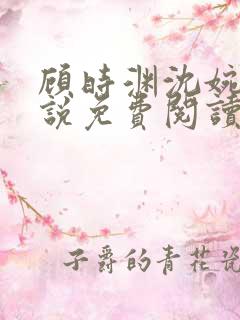 顾时渊沈婉
說免費閱讀
子爵的青花瓷